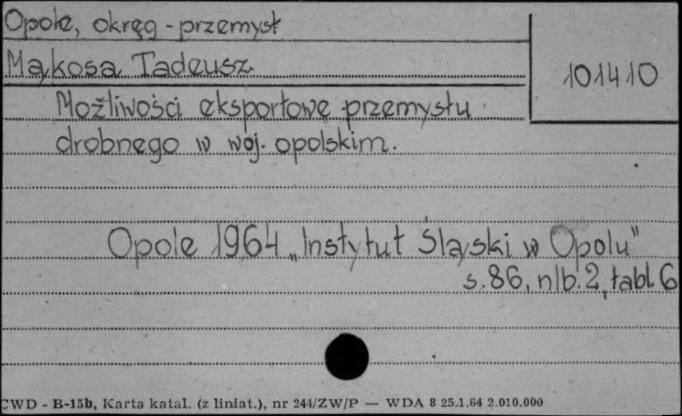 Opole, okręg - przemysł
Mąkosa Tadeusz
101410
Możliwości eksportowe przemysłu
drobnego w woj. opolskim.
Opole 1964 „Instytut Śląski w Opolu"
s. 86, nlb. 2, tabl. 6
CWD - B-15b, Karta katal. (z liniat.), nr 244/ZW/P — WDA 8 25.1.64 2.010.000